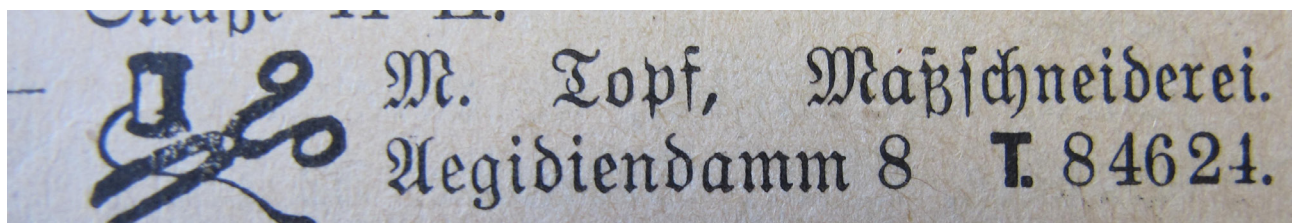 M. Topf, Maßschneiderei.
Aegidiendamm 8 T. 84624.